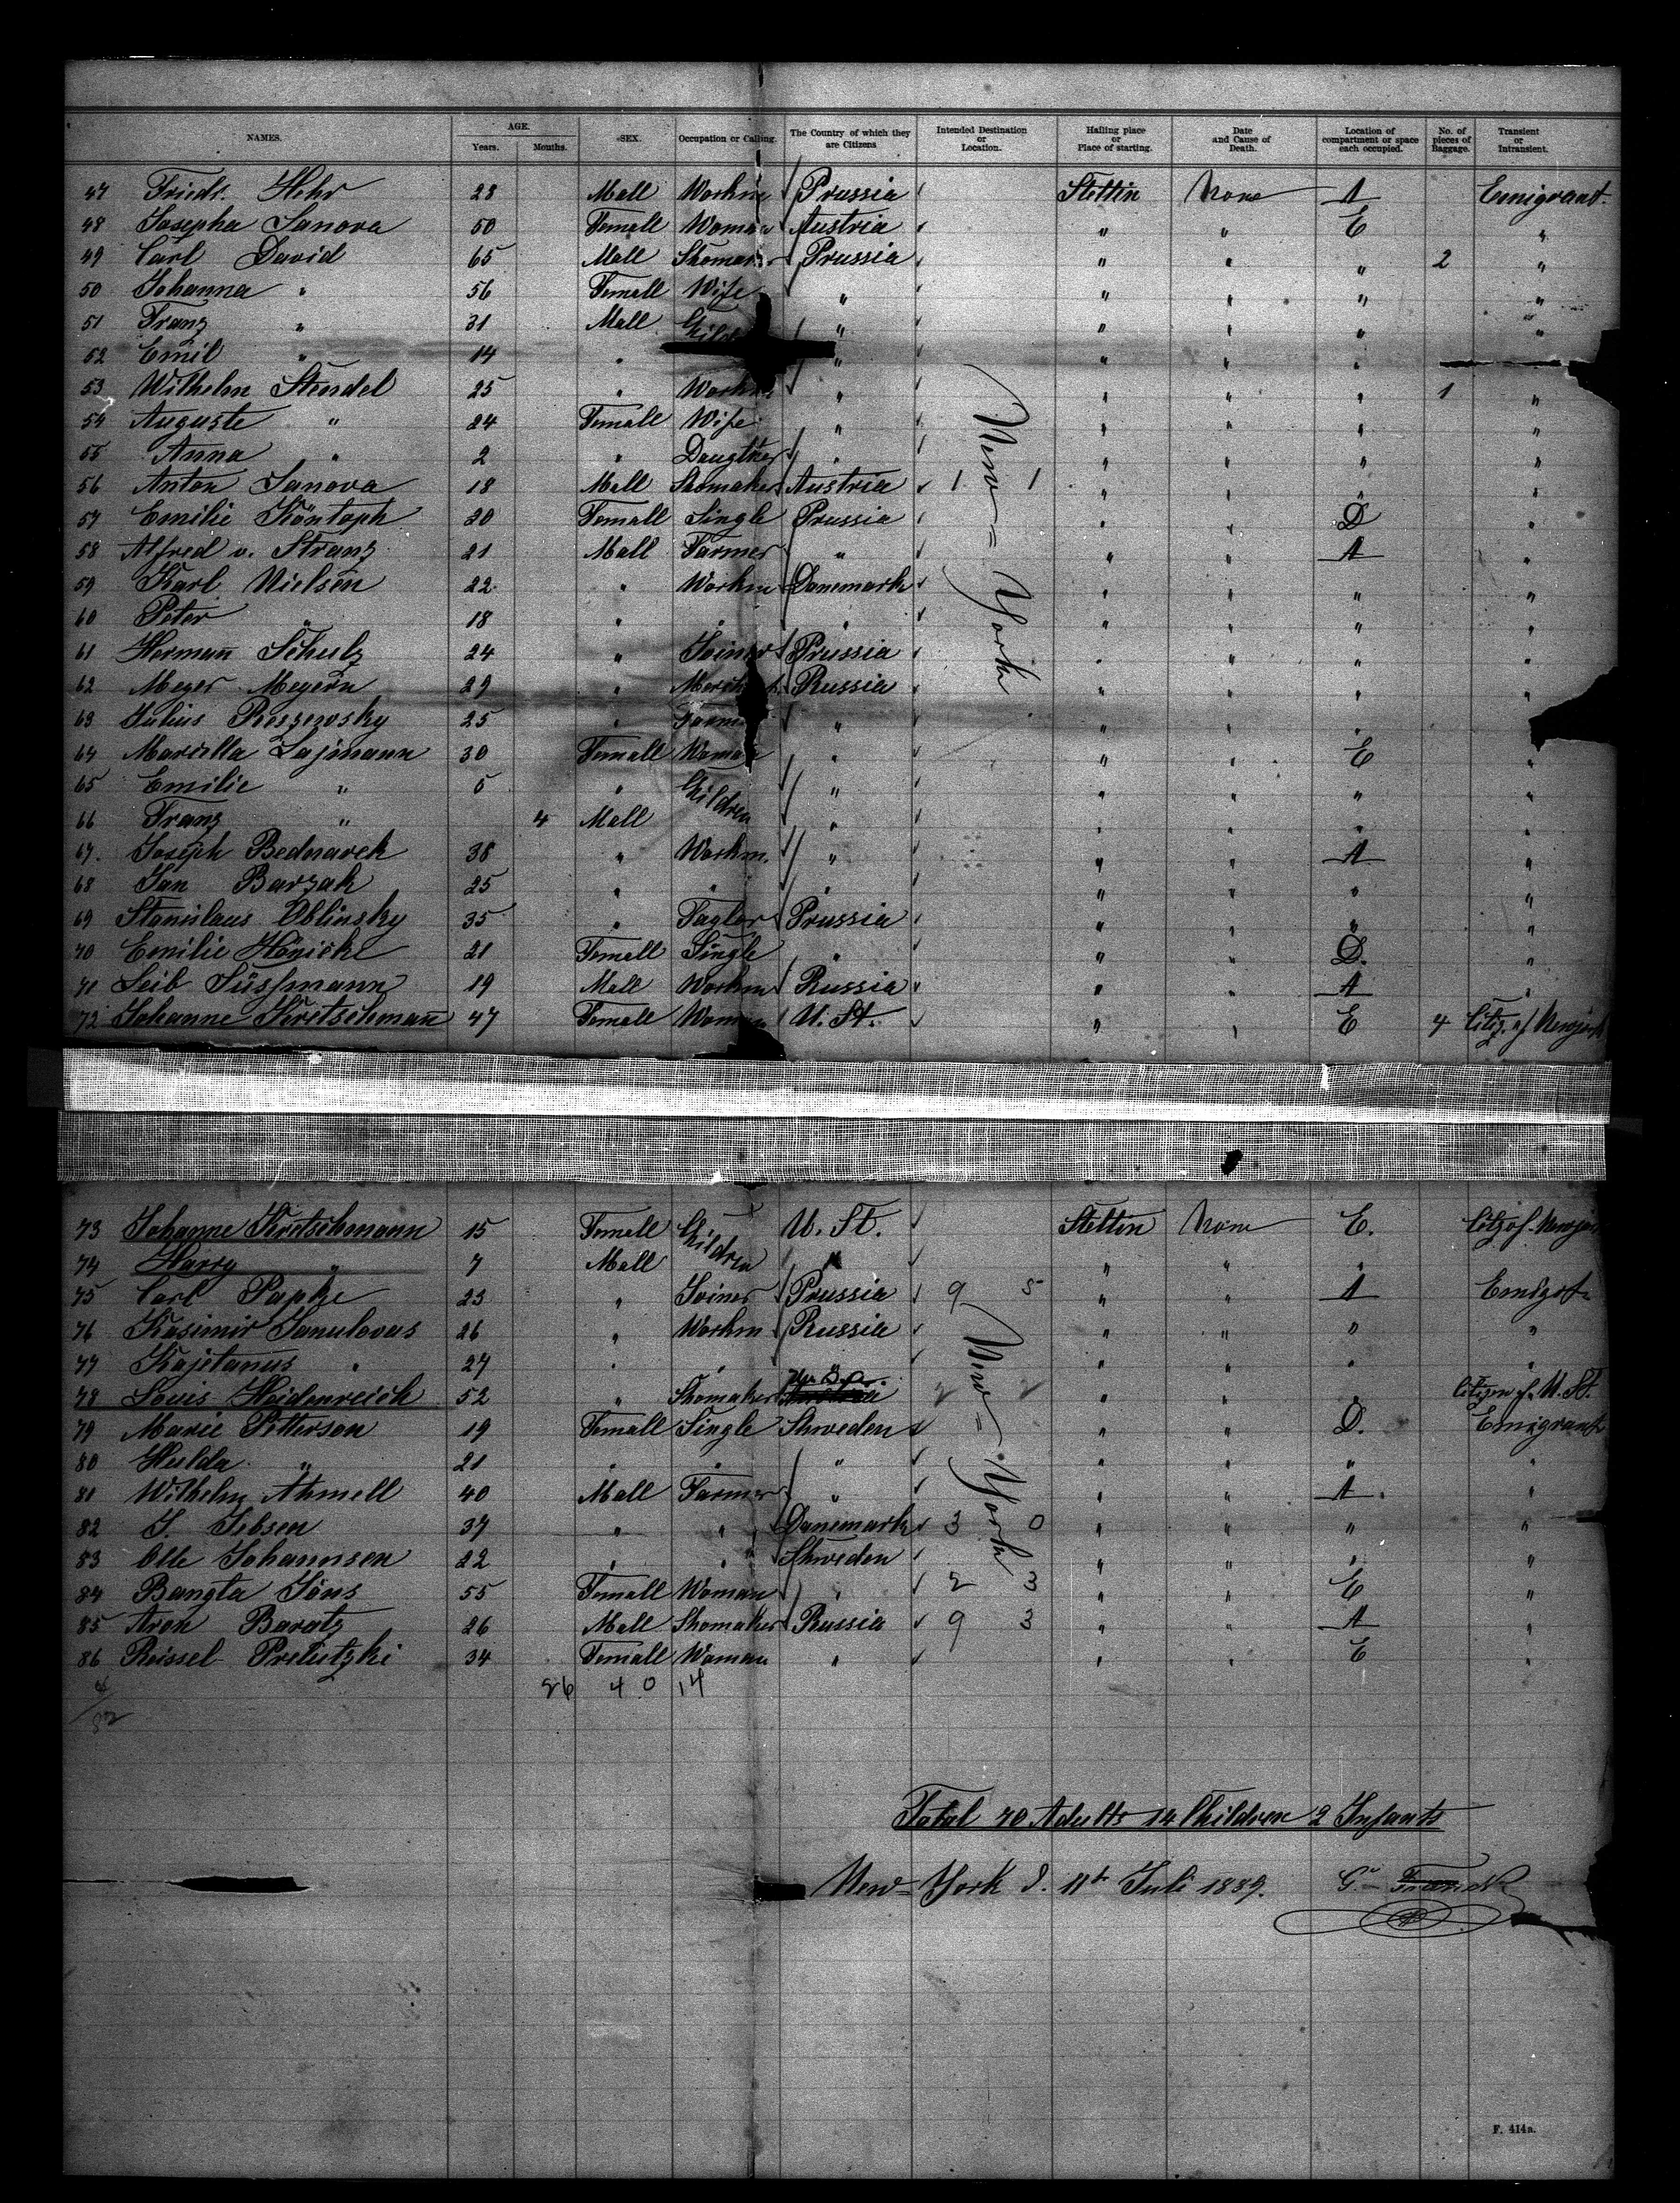 NAMES. AGE. Years. Months. SEX. Occupation or Calling. The Country of which they are Citizens Intended Destination or Location. Hailing place or Place of starting. Date and Cause of Death. Location of compartment or space each occupied. No. of pieces of Baggage. Transient or Intransient.
47 Friedr. Hehr 28 Mall Workm Prussia Stettin None A Emigrant.
48 Josepha Janova 50 Femall Woman Austria " " E "
49 Carl David 65 Mall Shomaker Prussia " " " 2 "
50 Johanna " 56 Femall Wife " " " " "
51 Franz " 31 Mall Child " " " " "
52 Emil " 14 " " " " "
53 Wilhelm Stendel 25 " Workm " " " " 1 "
54 Auguste " 24 Femall Wife " " " " "
55 Anna " 2 " Daugther " " " " "
56 Anton Janova 18 Mall Shomaker Austria 1 1 " " " "
57 Emilie Köntoph 20 Femall Single Prussia " " D "
58 Alfred v. Stranz 21 Mall Farmer " " " A "
59 Karl Nielsen 22 " Workm Danemark " " " "
60 Peter " 18 " " " " " " "
61 Hermann Schulz 24 " Joiner Prussia " " " "
62 Meyer Meyern 29 " Merchant Russia " " " "
63 Julius Roszewsky 25 " Farmer " " " " "
64 Marcilla Lajmann 30 Femall Woman " " " E "
65 Emilie " 5 " Children " " " " "
66 Franz " 4 Mall " " " " "
67. Joseph Bednarek 38 " Workm. " " " A "
68 Jan Barzak 25 " " " " " " "
69 Stanislaus Oblinsky 35 " Taylor Prussia " " " "
70 Emilie Hönicke 21 Femall Single " " " D. "
71 Leib Süssmann 19 Mall Workm Russia " " A "
72 Johanne Kretschmann 47 Femall Woman U. St. " " E 4 Citiz. of Newjork
New=York
73 Johanne Kretschmann 15 Femall Children U. St. Stettin None E. Citz of Newjork
74 Harry " 7 Mall " " " "
75 Carl Papke 23 " Joiner Prussia 9 5 " " A Emigrt
76 Kasimir Janulovas 26 " Workm Russia " " " "
77 Kajetanus " 27 " " " " " " "
78 Louis Heidenreich 52 " Shomaker 2 2 " " " Citizen of U. St.
79 Marie Petterson 19 Femall Single Shweden " " D. Emigrant
80 Hulda " 21 " " " " " " "
81 Wilhelm Ahmell 40 Mall Farmer " " " A "
82 J. Jebsen 37 " " Danemark 3 0 " " " "
83 Olle Johannsen 22 " " Shweden " " " "
84 Bangta Jöns 55 Femall Woman " 2 3 " " E "
85 Aron Baratz 26 Mall Shomaker Russia 9 3 " " A "
86 Reissel Prelutzki 34 Femall Woman " " " E "
New=York
26 40 14
82
Total 70 Adults 14 Children 2 Infants
New=York d. 11th Juli 1889.
F. 414a.